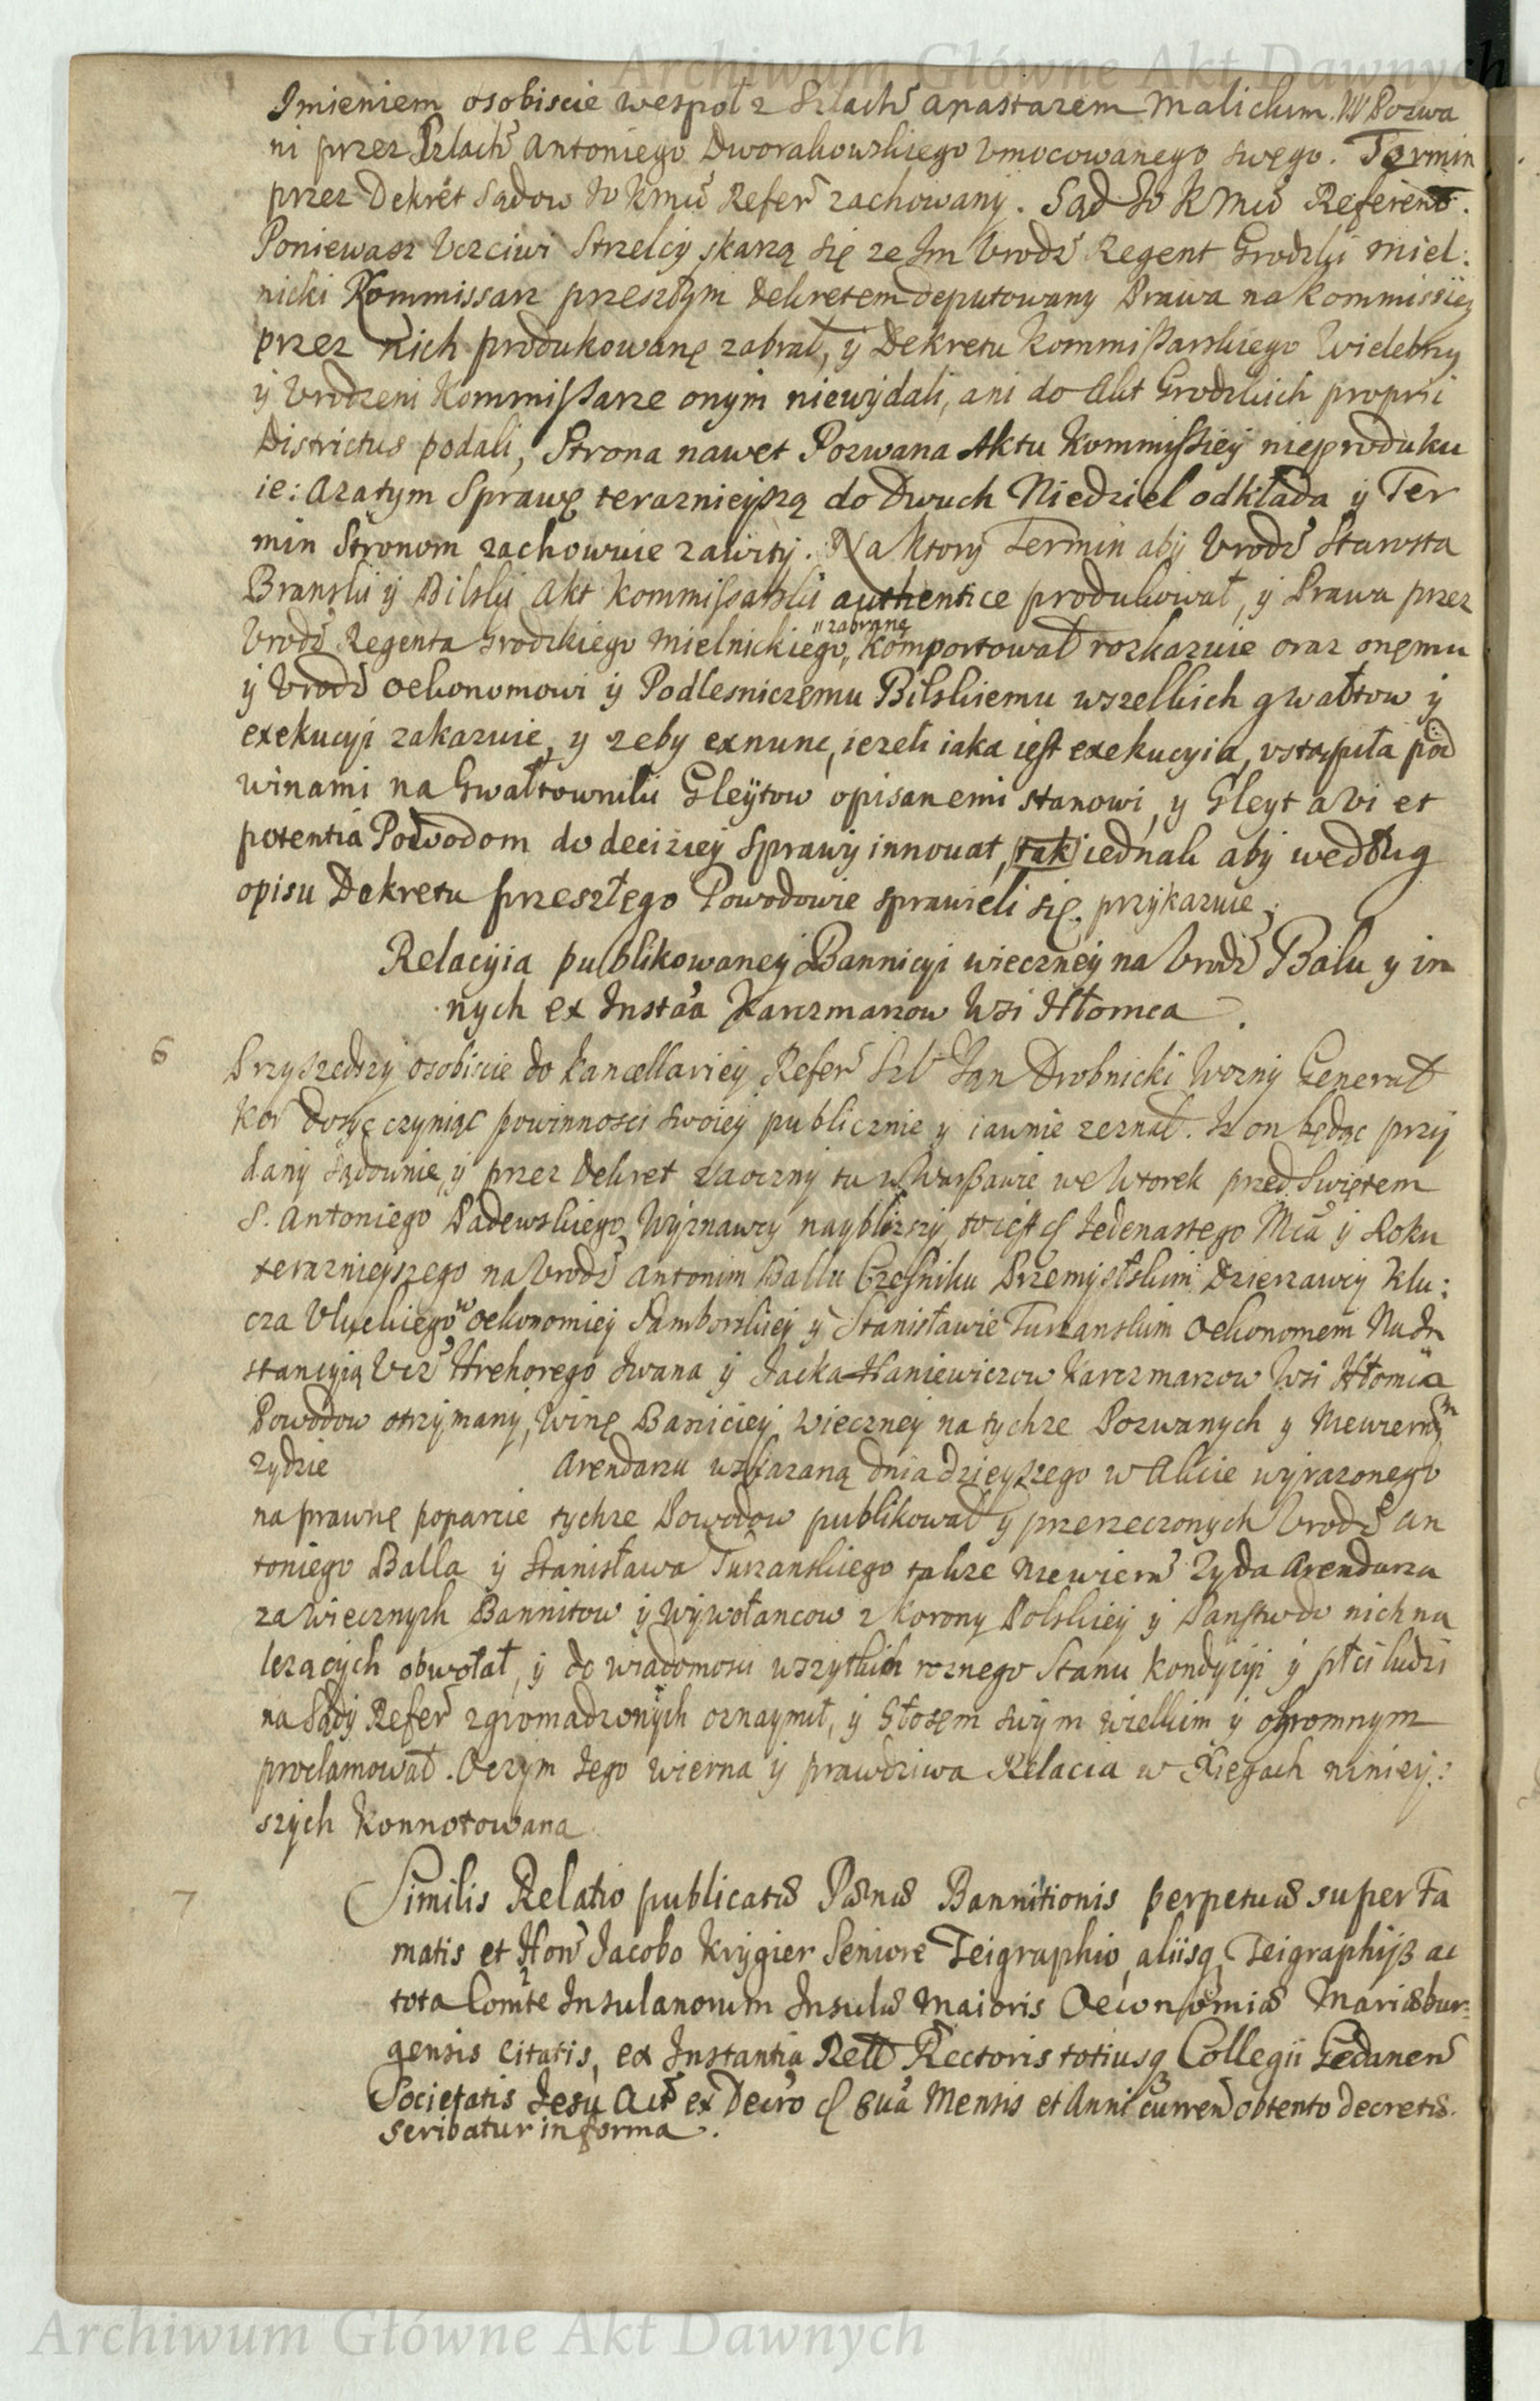 Archiwum Główne Akt Dawnych
Imieniem osobiscie wespoł z Szlach Anastazem Malickim. W Pozwa
ni przez Szlach Antoniego Dworakowskiego Vmocowanego swego. Termin
przez Dekret Sądow JoKMci Refer zachowany. Sąd JoKMci Referen.
Poniewasz Vczciwi Strzelcy skarzą się ze Jm Vrodz Regent Grodzki Miel:
nicki Kommissarz przeszłym Dekretem deputowany Prawa na Kommissiey
przez nich produkowanę zabrał, y Dekretu Kommissarskiego Wielebny
y Vrodzeni Kommissarze onym niewydali, ani do Akt Grodzkich proprii
Districtus podali, Strona nawet Pozwana Aktu Kommissiey nieproduku
ie: Azatym Sprawę teraznieyszą do Dwuch Niedziel odkłada y Ter
min Stronom zachowuie zawity. Na ktory Termin aby Vrodz Starosta
Branski y Bilski Akt Kommissarski authentice produkował, y Prawa przez
Vrodz Regenta Grodzkiego Mielnickiego, "zabranę Komportował rozkazuie oraz onemu
y Vrodz Oekonomowi y Podlesniczemu Bilskiemu wszelkich gwałtow y
exekucyi zakazuie, y zeby exnunc, iezeli iaka iest exekucyia, vstąpiła pod
winami na Gwałtowniki Gleytow opisanemi stanowi, y Gleyt a vi et
potentia Powodom do deciziey Sprawy innouat, tak iednak aby według
opisu Dekretu przeszłego Powodowie sprawieli się. przykazuie.
Relacyia publikowaney Bannicyi wieczney na Vrodz Balu y in
nych ex Insta Karczmarzow Wsi Hłomca.
6
Przyszedszy osobiscie do Kancellariey Refer Szl Jan Drobnicki Wozny Generał
Kor dosyc czyniąc powinnosci swoiey publicznie y iawnie zeznał. Iz on będąc przy
dany Sądownie, y przez Dekret zaoczny tu w Warszawie we Wtorek przed Swiętem
S. Antoniego Padewskiego, Wyznawcy nayblizszy, to iest d Jedenastego Mca y Roku
terazniejszego na Vrodz Antonim Ballu Czesniku Przemyslskim Dzierzawcy Klu:
cza Vluckiego w Oekonomiey Samborskiey y Stanisławie Turzanskim Oekonomem Na In
stancyią Vcz Hrehorego Iwana y Jacka Haniewiczow Karczmarzow Wsi Hłomca
Powodow otrzymany, Winę Baniciey wieczney na tychze Pozwanych y Niewiernym
zydzie Arendarzu wskazaną dnia dzieyszego w Akcie wyrazonego
na prawnę poparcie tychze Powodow publikował y przerzeczonych Vrodz An
toniego Balla y Stanisława Turzanskiego takze Niewiern Zyda Arendarza
za Wiecznych Bannitow y Wywołancow z Korony Polskiey y Panstw do nich na
lezących obwołał, y do wiadomosci wszytkich roznego Stanu Kondycyi y płci ludzi
na Sądy Refer zgromadzonych oznaymił, y Głosem swym wielkim y ogromnym
proclamował. Oczym Jego wierna y prawdziwa Relacia w Xięgach niniey:
szych Konnotowana.
7
Similis Relatio publicatæ Pœnæ Bannitionis perpetuæ super Fa
matis et Hon Jacobo Krygier Seniore Teigraphio, aliisq Teigraphijs ac
tota Comte Insulanorum Insulæ Maioris Oeconomiæ Mariæbur=
gensis Citatis, ex Instantia Rell Rectoris totiusq Collegii Gedanen
Societatis Jesu Act ex Decro d 8va Mensis et Anni curren obtento decretæ.
scribatur in forma.
Archiwum Główne Akt Dawnych